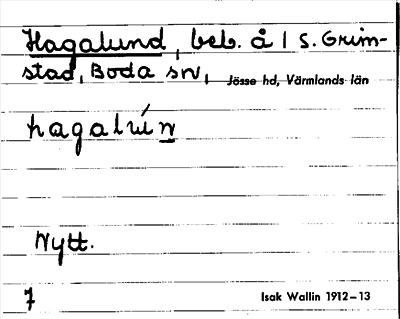 Hagalund, beb. å 1 S. Grim-
stad, Boda sn, Jösse hd, Värmlands län
hagalúṉ
Nytt.
7
Isak Wallin 1912–13